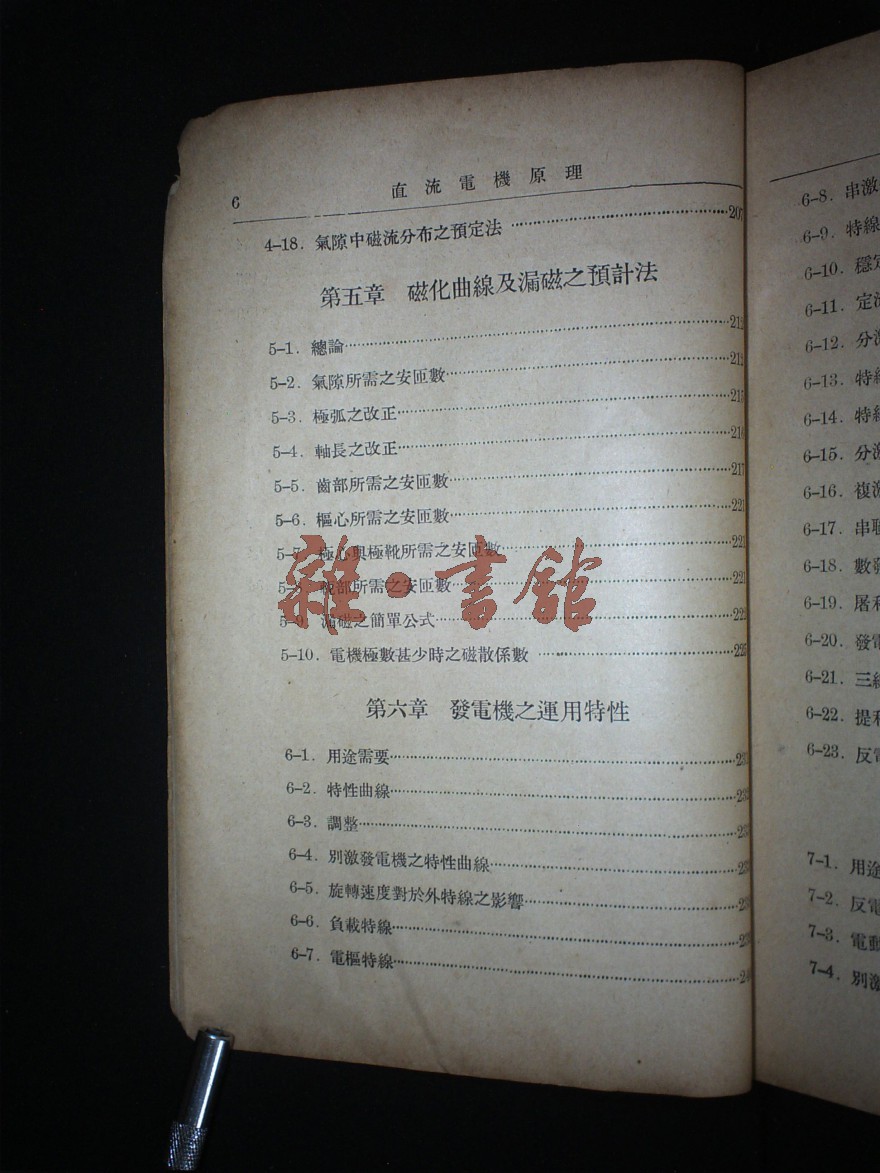 6 直流電機原理
4–18. 氣隙中磁流分布之預定法 207
第五章 磁化曲線及漏磁之預計法
5–1. 總論 212
5–2. 氣隙所需之安匝數 212
5–3. 極弧之改正 215
5–4. 軸長之改正 216
5–5. 齒部所需之安匝數 217
5–6. 樞心所需之安匝數 221
5–7. 極心與極靴所需之安匝數 221
5–8. 軛部所需之安匝數 221
5–9. 漏磁之簡單公式
5–10. 電機極數甚少時之磁散係數
第六章 發電機之運用特性
6–1. 用途需要
6–2. 特性曲線
6–3. 調整
6–4. 別激發電機之特性曲線
6–5. 旋轉速度對於外特線之影響
6–6. 負載特線
6–7. 電樞特線
雜·書館
6–8. 串激
6–9. 特線
6–10. 穩定
6–11. 定
6–12. 分激
6–13. 特線
6–14. 特線
6–15. 分激
6–16. 複激
6–17. 串聯
6–18. 數發
6–19. 屠利
6–20. 發電
6–21. 三線
6–22. 提利
6–23. 反電
7–1. 用途
7–2. 反電
7–3. 電動
7–4. 別激